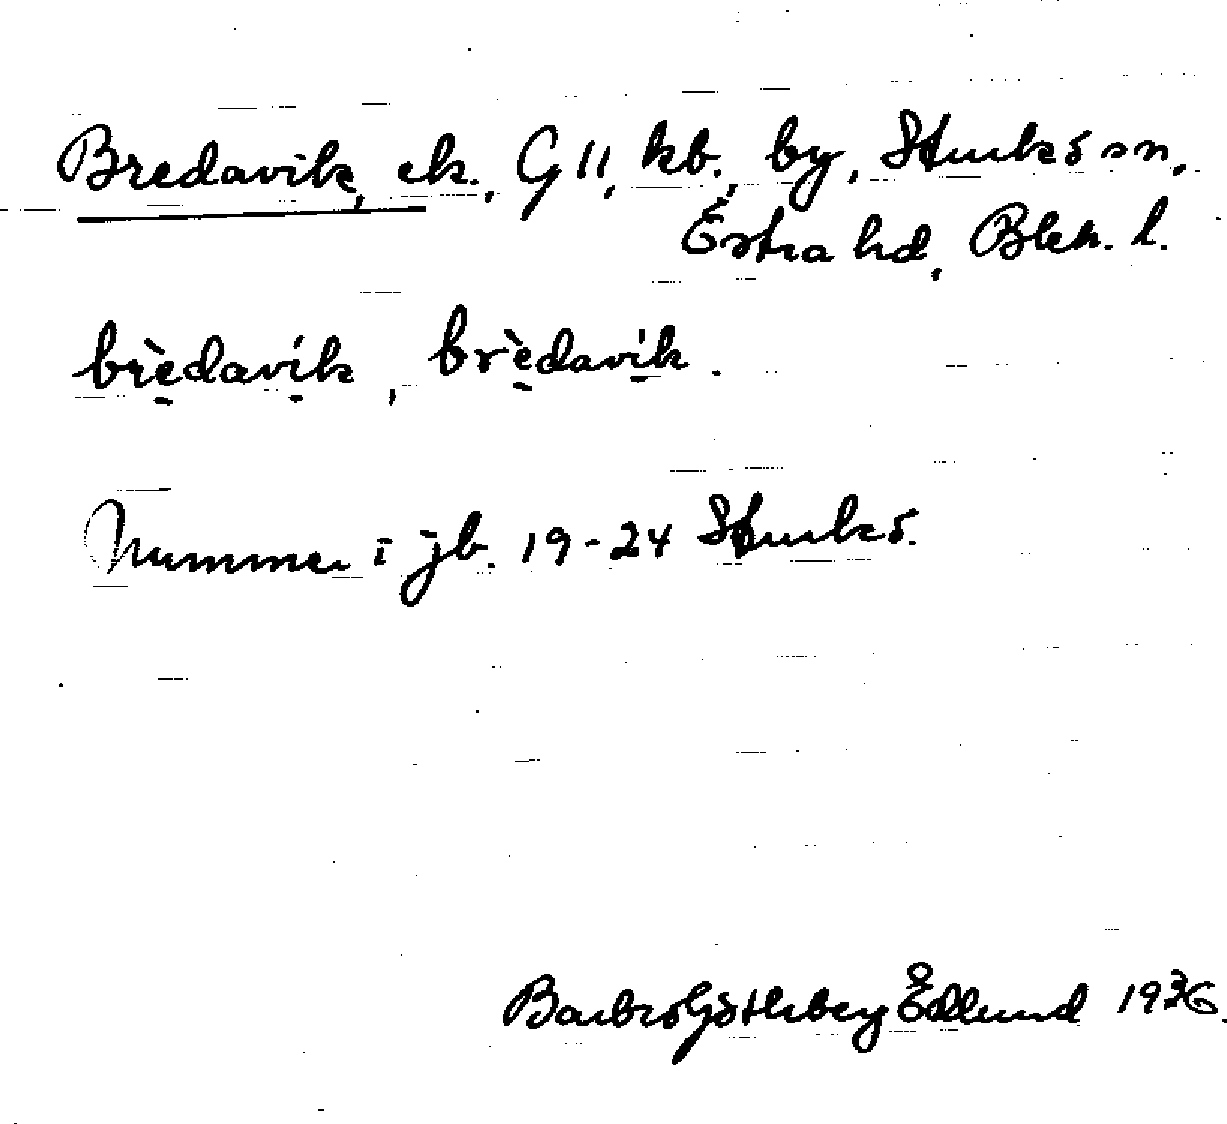 Bredavik, ek., G 11, kb., by, Sturkö sn,
Östra hd, Blek. l.
brè̱daví̱k, brè̱daví̱k.
Nummer i jb. 19-24 Sturkö.
Barbro Götleberg Edlund 1936.